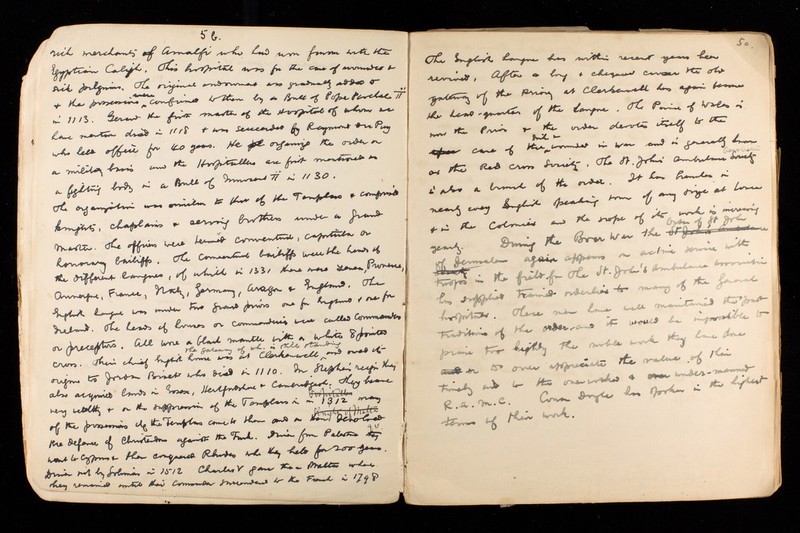 56.
rich merchants of Amalfi who had won favour with the
Egyptian Caliph. This hospital was for the care of wounded &
sick pilgrims. The original endowment was gradually added to
& the possessions were confirmed to them by a Bull of Pope Paschal II
in 1113. Gerard the first master of the Hospital of whom we
have mention died in 1118 & was succeeded by Raymond du Puy
who held office for 40 years. He organized the order on
a military basis and the Hospitallers are first mentioned as
a fighting body in a Bull of Innocent II in 1130.
The organization was similar to that of the Templars & comprised
Knights, chaplains & serving brothers under a Grand
Master. The officers were termed conventual, capitular or
honorary bailiffs. The conventual bailiffs were the heads of
the different langues, of which in 1331 there were seven, Provence,
Auvergne, France, Italy, Germany, Aragon & England. The
English langue was under two Grand priors one for England & one for
Ireland. The heads of houses or commanderies were called Commanders
or preceptors. All wore a black mantle with a white 8 pointed
cross. Their chief English house was at Clerkenwell, and owed its
the gateway of wh. is still standing
origin to Jordan Briset who died in 1110. In Stephen's reign they
also acquired lands in Essex, Hertfordshire & Cambridge. They became
very wealthy & on the suppression of the Templars in 1312 many
Hospitallers
of the possessions of the Templars came to them and
Knights of Malta
the defence of Christendom against the Turk. Driven from Palestine they
went to Cyprus & then conquered Rhodes who they held for 200 years.
Driven out by Soliman in 1512 Charles V gave them Malta where
they remained until their Commander surrendered to the French in 1798
50.
The English langue has within recent years been
revived. After a long & chequered career the old
gateway of the Priory at Clerkenwell has again become
the head-quarters of the langue. The Prince of Wales is
now the Prior & the order devotes itself to the
care of the sick & wounded in war and is generally known
as the Red Cross Society. The St. John's Ambulance Society
is also a branch of the order. It has branches in
nearly every English speaking town of any size at home
& in the Colonies and the scope of its work is increasing
yearly. During the Boer War the Order of St John
of Jerusalem again appears on active service with
troops in the field for the St. John's Ambulance Association
has supplied trained orderlies to many of the General
hospitals. These men have well maintained the past
traditions of the order and it would be impossible to
praise too highly the noble work they have done
or to over appreciate the value of their
timely aid to the overworked & under-manned
R.A.M.C. Conan Doyle has spoken in the highest
terms of their work.